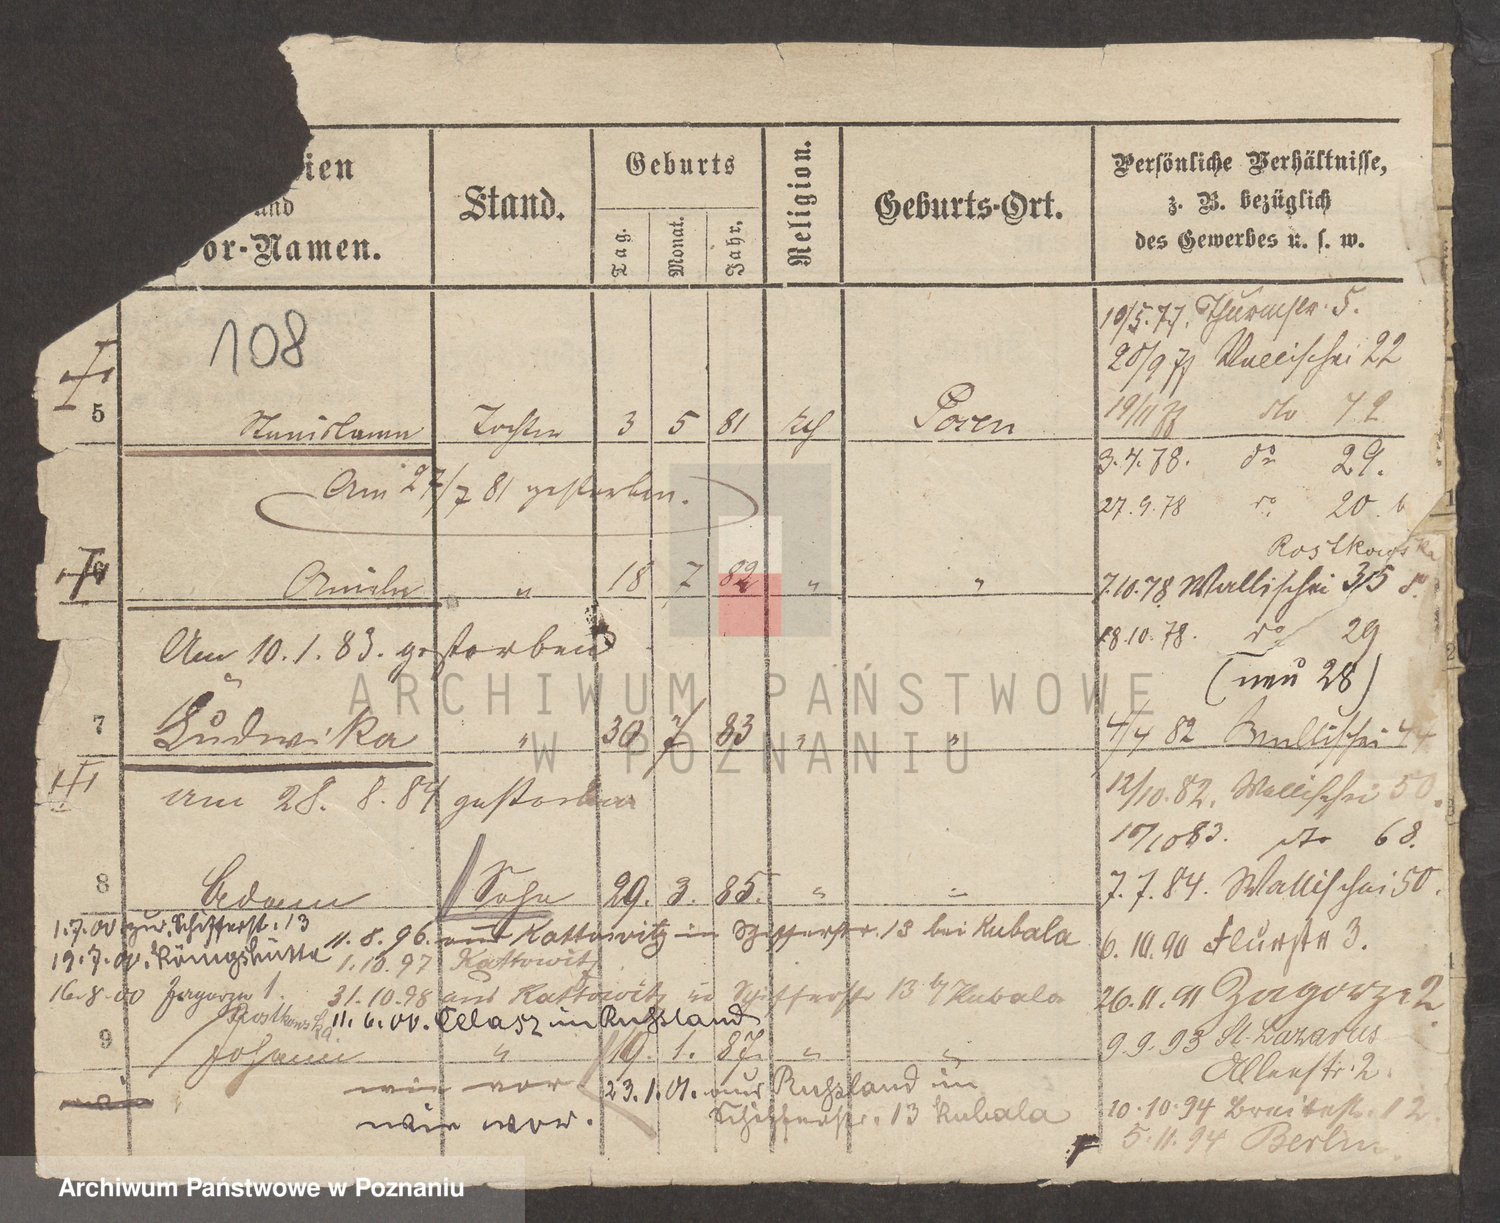 ien
und
or-Namen.
Stand.
Geburts
Tag.
Monat.
Jahr.
Religion.
Geburts-Ort.
Persönliche Verhältnisse,
z. B. bezüglich
des Gewerbes u. s. w.
108
10/5.77. Thurmstr. 5.
20/9 77 Wallischei 22
19/11 77 do 72
5 Stanislawa Tochter 3 5 81 kth Posen
3.4.78. do 29.
Am 27/7 81 gestorben.
27.9.78 do 20.
Rostkowska
6 18 7 82 " "
7.10.78 Wallischei 35
18.10.78. do 29
Am 10.1.83. gestorben
(neu 28)
7 Ludwika " 30 7 83 " "
4/4 82 Wallischei 44
am 28. 8. 84 gestorben
12/10.82. Wallischei 50.
10/10 83. do 68.
8 Adam Sohn 29. 3. 85. " "
7.7.84. Wallischei 50.
1.7.00 zur. Schifferst. 13
11.8.96. aus Kattowitz in Schifferstr. 13 bei Kubala
6.10.90 Flurstr 3.
19.7.00. Königshütte
1.10.97 Kattowitz
16.8.00 Zagorze 1.
31.10.98 aus Kattowitz in Schifferstr 13 b/ Kubala
26.11.91 Zagorze 2.
Rostkowska
11.6.00. in Russland
9 Johann " 19. 1. 87. " "
9.9.93 St. Lazarus
2.
wie vor 23.1.01. aus Russland in
Schifferstr. 13 Kubala
wie vor.
10.10.94 Breitestr. 12
5.11.94 Berlin.
ARCHIWUM PAŃSTWOWE
W POZNANIU
Archiwum Państwowe w Poznaniu